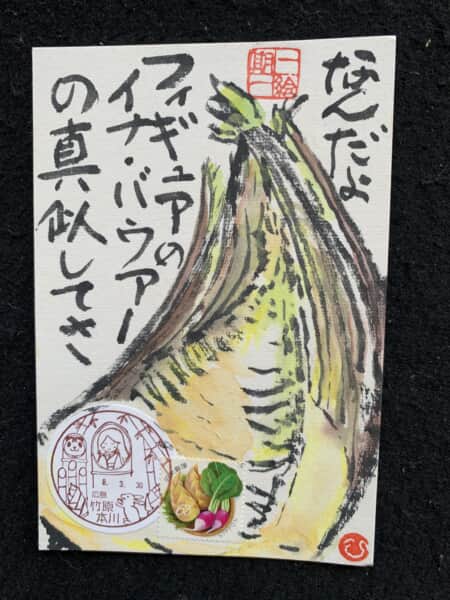 なんだよ
フィギュアの
イナ・バウアー
の真似してさ
8. 3. 30
広島
竹原
本川